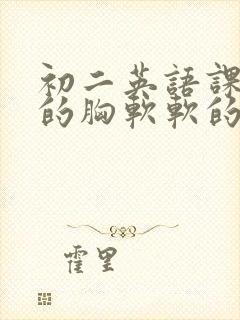 初二英語課
的胸軟軟的
霍里